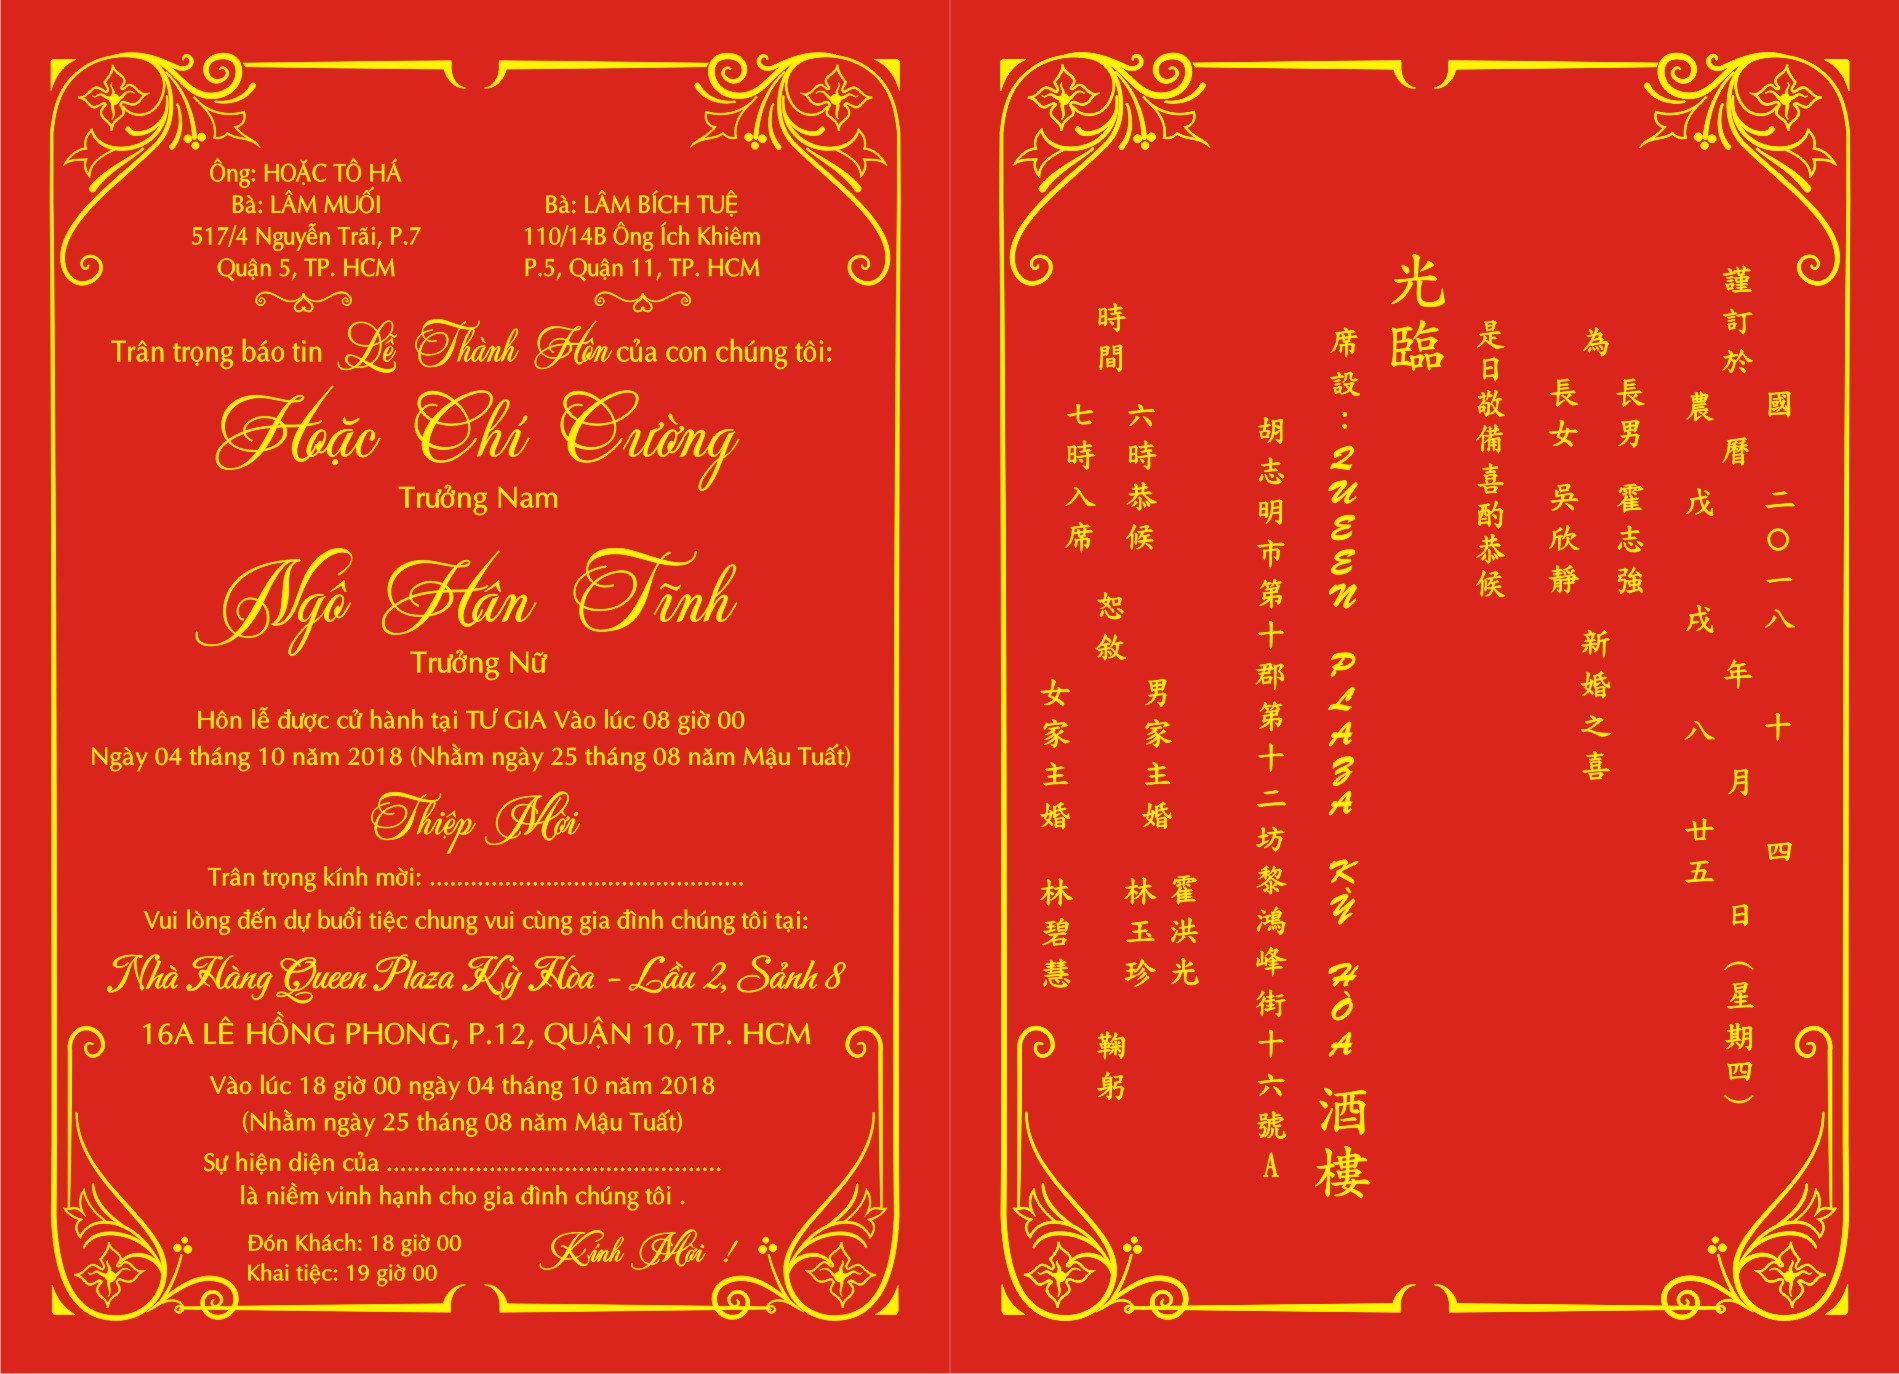 Ông: HOẶC TÔ HÁ
Bà: LÂM MUỐI
517/4 Nguyễn Trãi, P.7
Quận 5, TP. HCM
Bà: LÂM BÍCH TUỆ
110/14B Ông Ích Khiêm
P.5, Quận 11, TP. HCM
Trân trọng báo tin Lễ Thành Hôn của con chúng tôi:
Hoặc Chí Cường
Trưởng Nam
Ngô Hân Tĩnh
Trưởng Nữ
Hôn lễ được cử hành tại TƯ GIA Vào lúc 08 giờ 00
Ngày 04 tháng 10 năm 2018 (Nhằm ngày 25 tháng 08 năm Mậu Tuất)
Thiệp Mời
Trân trọng kính mời: ..............................................
Vui lòng đến dự buổi tiệc chung vui cùng gia đình chúng tôi tại:
Nhà Hàng Queen Plaza Kỳ Hòa - Lầu 2, Sảnh 8
16A LÊ HỒNG PHONG, P.12, QUẬN 10, TP. HCM
Vào lúc 18 giờ 00 ngày 04 tháng 10 năm 2018
(Nhằm ngày 25 tháng 08 năm Mậu Tuất)
Sự hiện diện của .................................................
là niềm vinh hạnh cho gia đình chúng tôi .
Đón Khách: 18 giờ 00
Khai tiệc: 19 giờ 00
Kính Mời !
謹訂於
國 二〇一八 十 四
曆 年 月 日(星期四)
農 戊 戌 八 廿五
為
長男 霍志強
長女 吳欣靜
新婚之喜
是日敬備喜酌恭候
光臨
席設:QUEEN PLAZA KỲ HÒA 酒樓
胡志明市第十郡第十二坊黎鴻峰街十六號A
時間
六時恭候
七時入席
恕敘
男家主婚 霍洪光
林玉珍
女家主婚 林碧慧
鞠躬